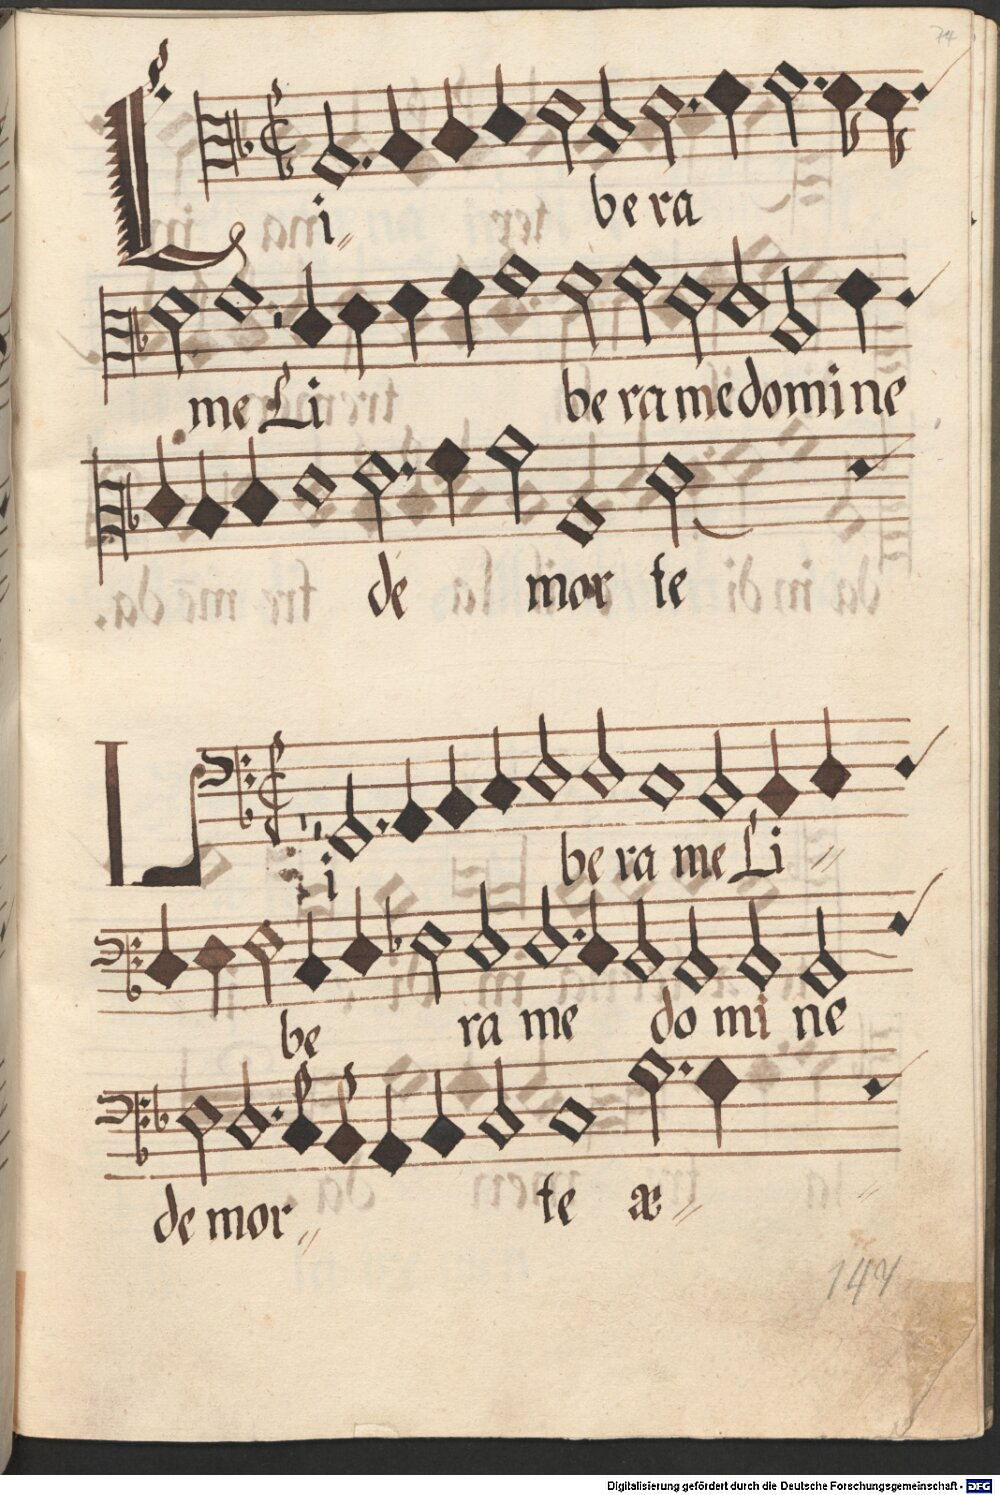 74
Li〃 be ra
me Li be ra me domine
de mor te
Li be ra me Li〃
be ra me do mi ne
de mor〃 te æ〃
147
Digitalisierung gefördert durch die Deutsche Forschungsgemeinschaft - DFG